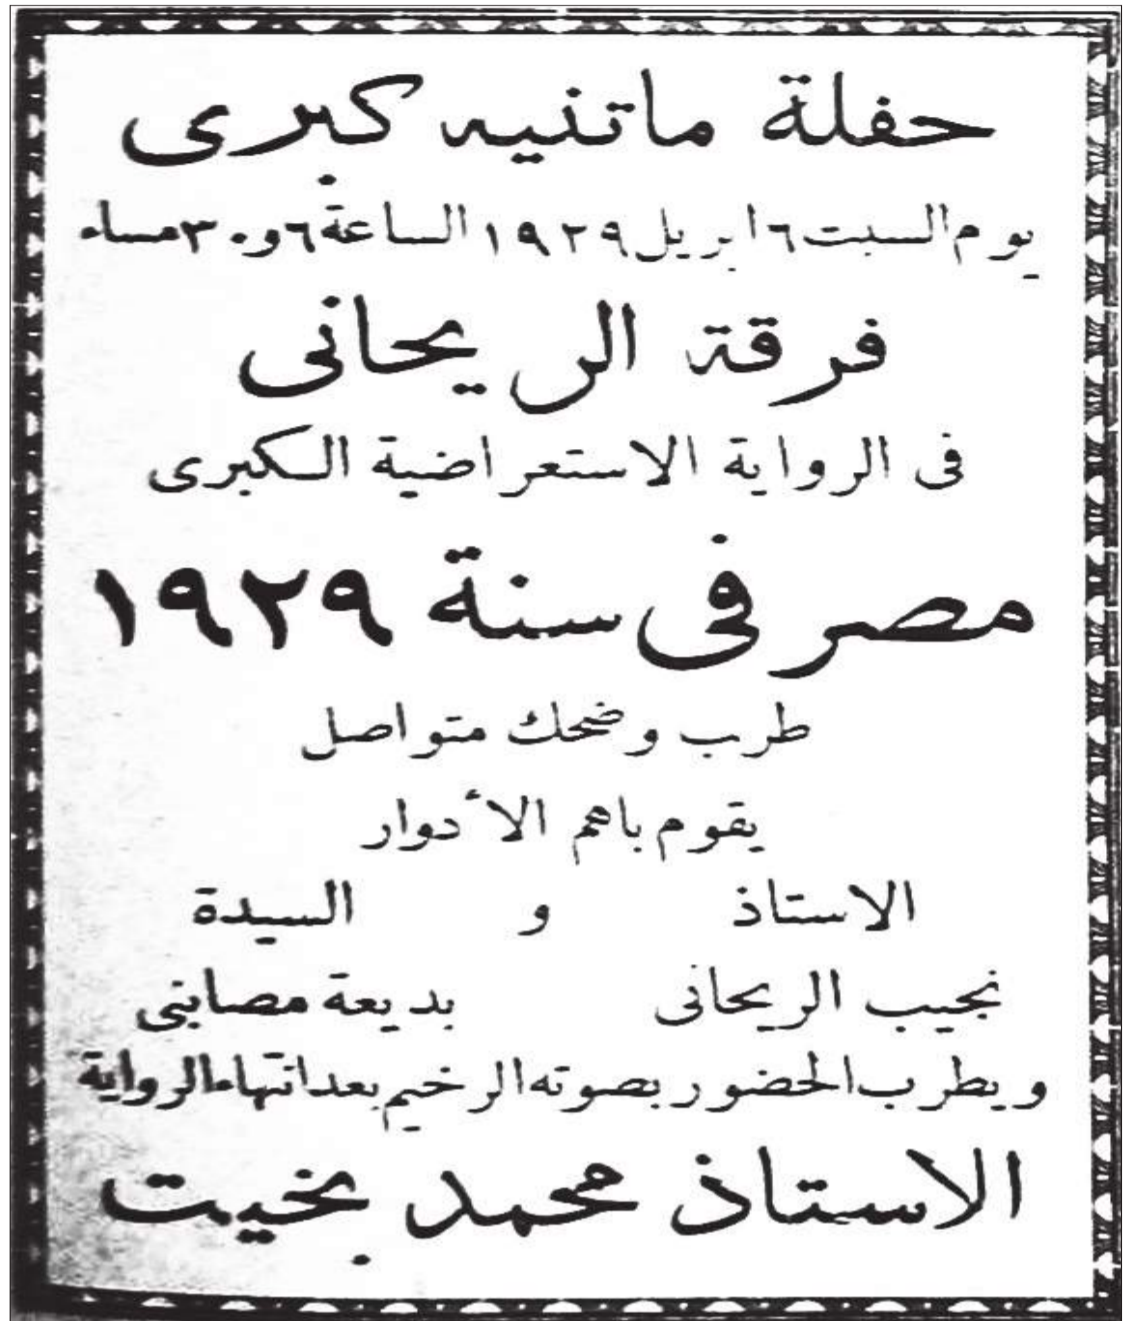 حفلة ماتنيه كبرى
يوم السبت ٦ ابريل ١٩٢٩ الساعة ٦ و ٣٠ مساء
فرقة الريحانى
فى الرواية الاستعراضية الكبرى
مصر فى سنة ١٩٢٩
طرب وضحك متواصل
يقوم باهم الأدوار
الاستاذ و السيدة
نجيب الريحانى بديعة مصابنى
ويطرب الحضور بصوته الرخيم بعد انتهاء الرواية
الاستاذ محمد بخيت